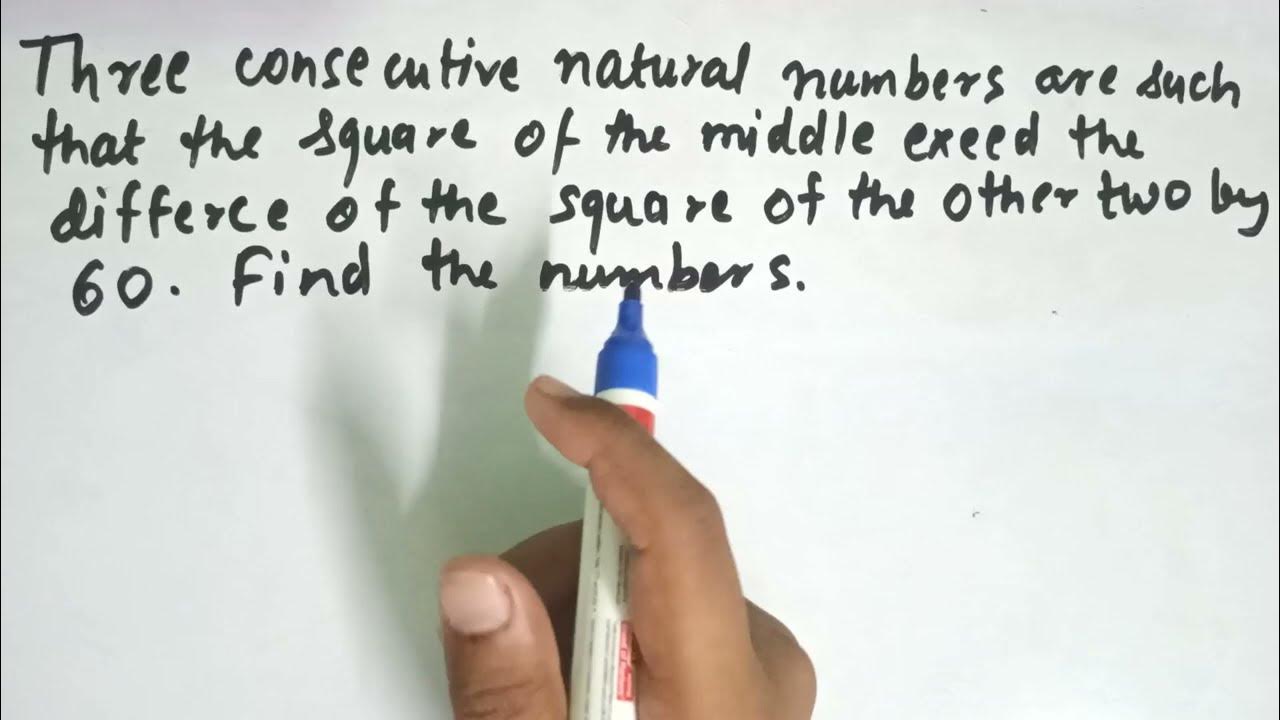 Three consecutive natural numbers are such
that the square of the middle exeed the
differce of the square of the other two by
60. Find the numbers.